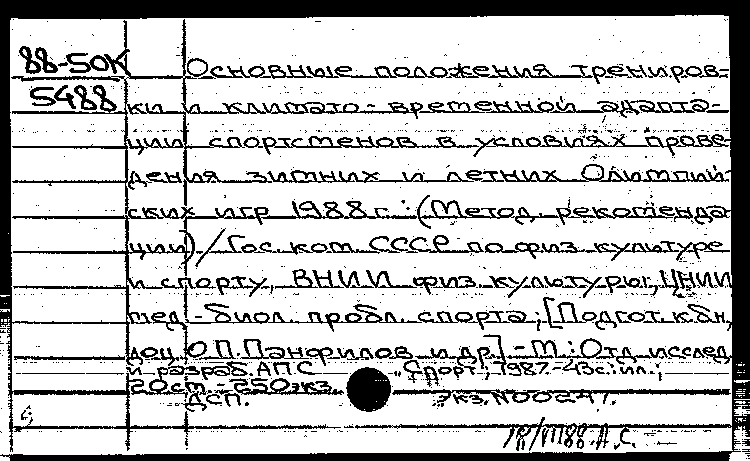 88-50К
5488
Основные положения трениров-
ки и климато-временной адапта-
ции спортсменов в условиях прове-
дения зимних и летних Олимпий-
ских игр 1988 г.: (Метод. рекоменда-
ции) / Гос. ком. СССР по физ. культуре
и спорту, ВНИИ физ. культуры, ЦНИИ
мед.-биол. пробл. спорта; [Подгот. к.б.н.,
доц. О.П. Панфилов и др.] - М.: Отд. исслед.
и разраб. АПС "Спорт", 1987.-43с.: ил.;
20см. - 250экз.
ДСП. Экз. N00241.
/М88.А.С.